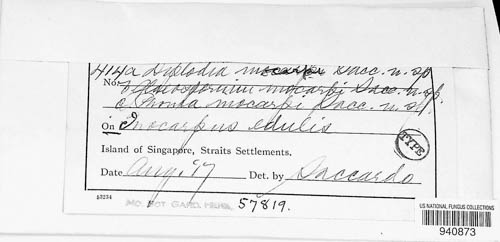 414a Diplodia inocarpi Sacc. n. sp.
No. b Gloeosporium inocarpi Sacc. n. sp.
c Phoma inocarpi Sacc. n. sp.
On Inocarpus edulis
TYPE
Island of Singapore, Straits Settlements.
Date Aug. '17 Det. by Saccardo
53234
MO. BOT GARD. HERB. 57819.
US NATIONAL FUNGUS COLLECTIONS
940873